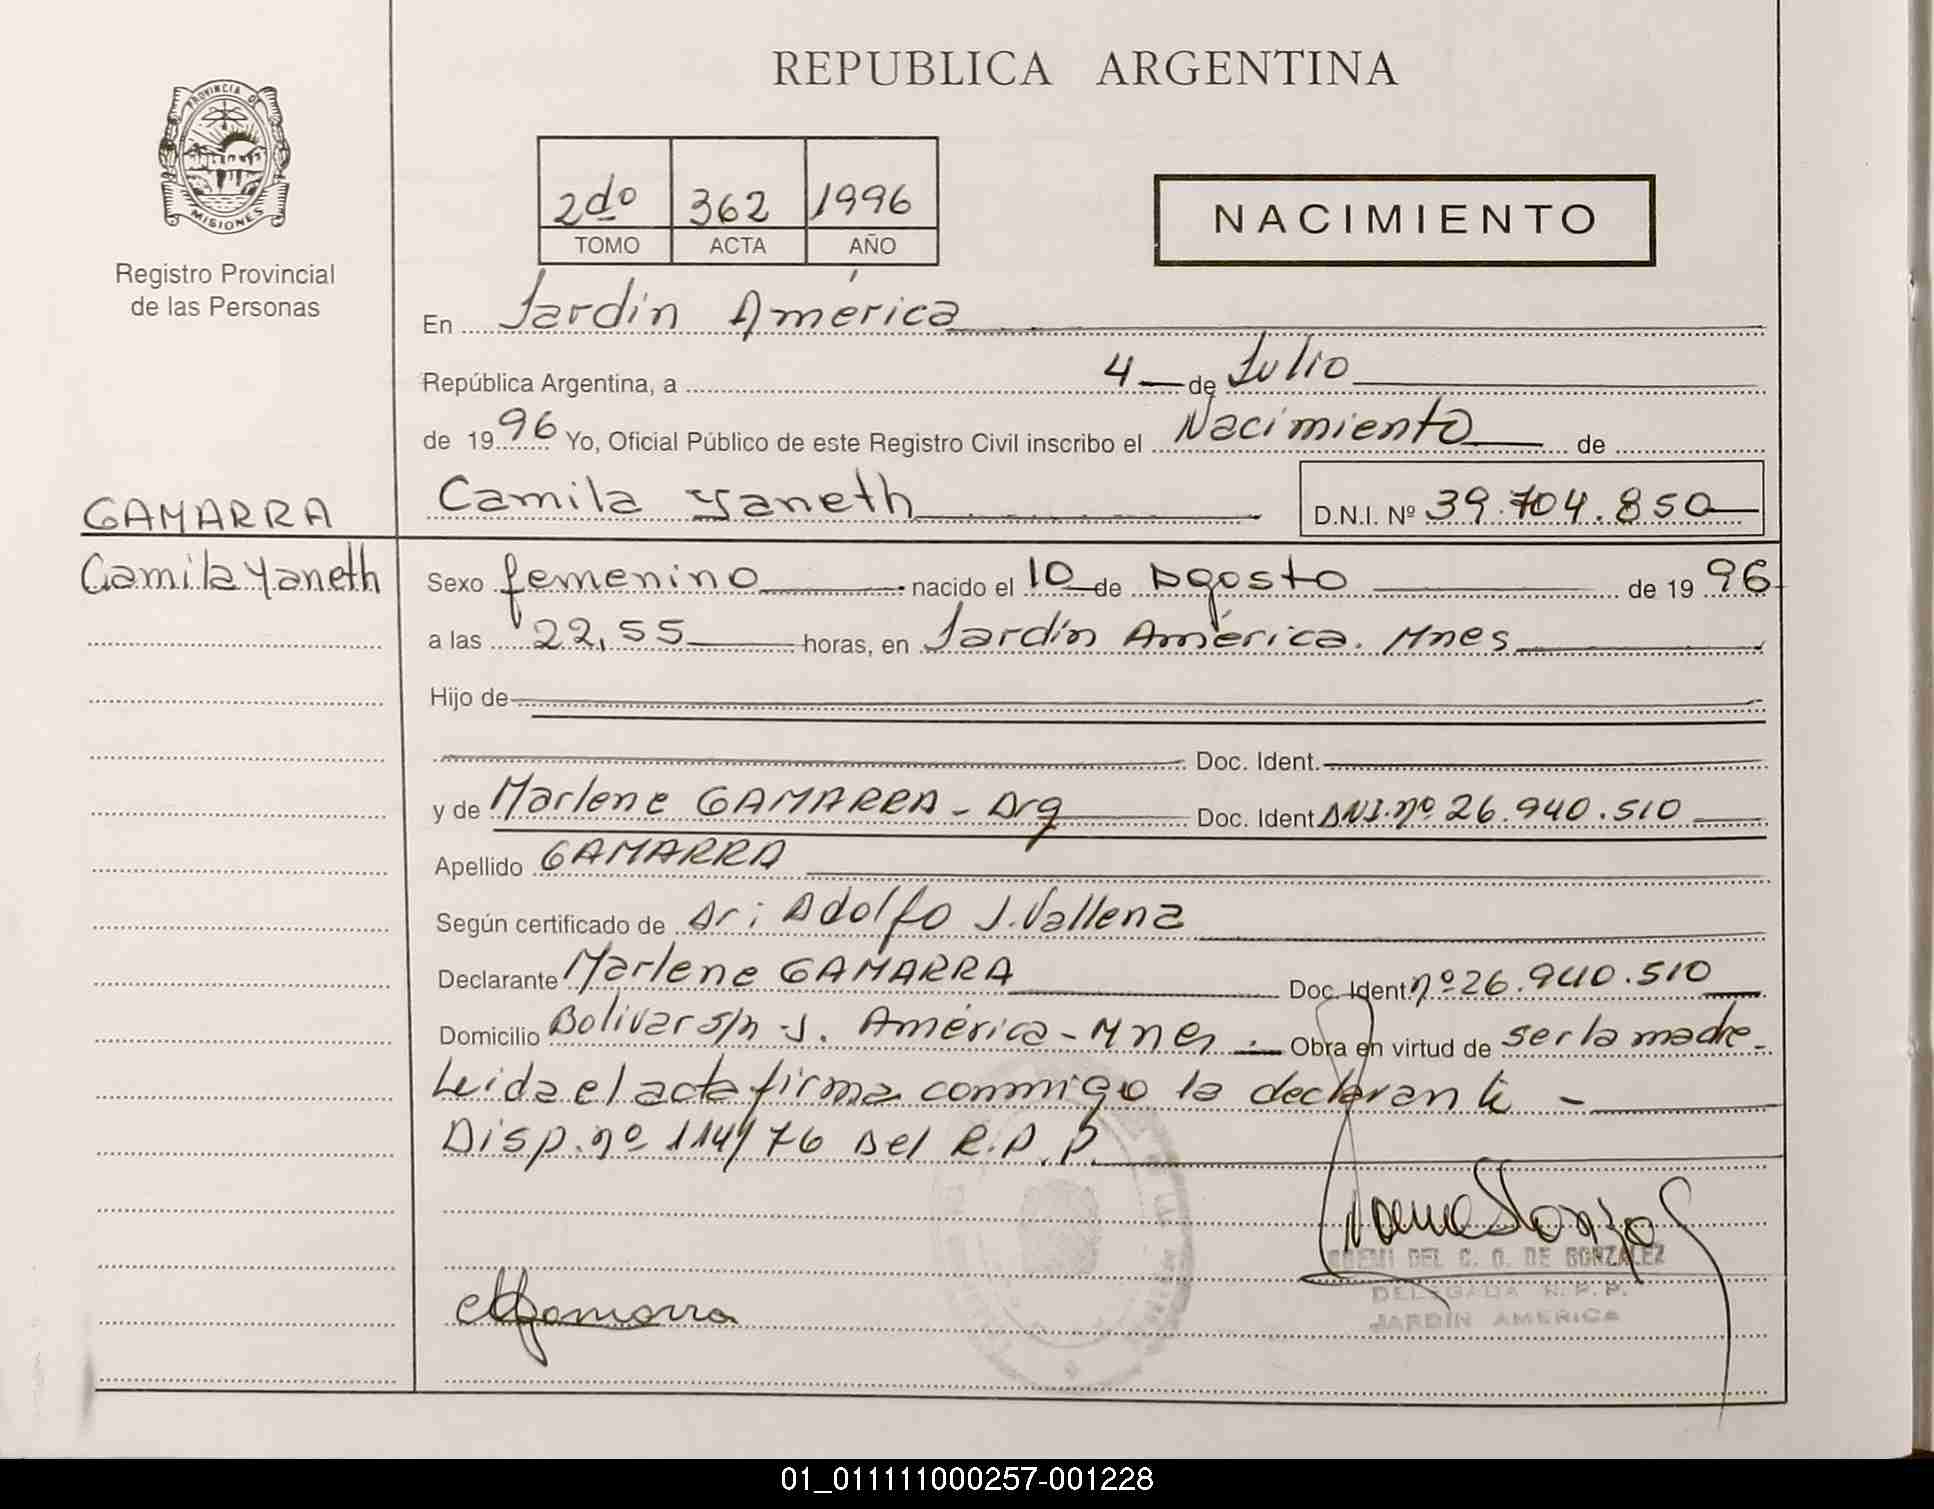 REPUBLICA ARGENTINA
PROVINCIA DE
MISIONES
Registro Provincial
de las Personas
2do 362 1996
TOMO ACTA AÑO
NACIMIENTO
En Jardín América
República Argentina, a 4 de Julio
de 1996 Yo, Oficial Público de este Registro Civil inscribo el Nacimiento de
GAMARRA
Camila Yaneth
Camila Yaneth D.N.I. Nº 39.704.850
Sexo femenino nacido el 10 de Agosto de 1996
a las 22,55 horas, en Jardín América. Mnes
Hijo de
Doc. Ident.
y de Marlene GAMARRA - Arg Doc. Ident DNI.nº 26.940.510
Apellido GAMARRA
Según certificado de Dr: Adolfo J. Vallena
Declarante Marlene GAMARRA Doc. Ident. nº 26.940.510
Domicilio Bolivar s/n - J. América - Mnes. Obra en virtud de ser la madre.
Leida el acta firma conmigo la declarante -
Disp. nº 114/76 Del R.P.P.
NOEMI DEL C. O. DE GONZALEZ
DELEGADA R.P.P.
JARDIN AMERICA
01_011111000257-001228